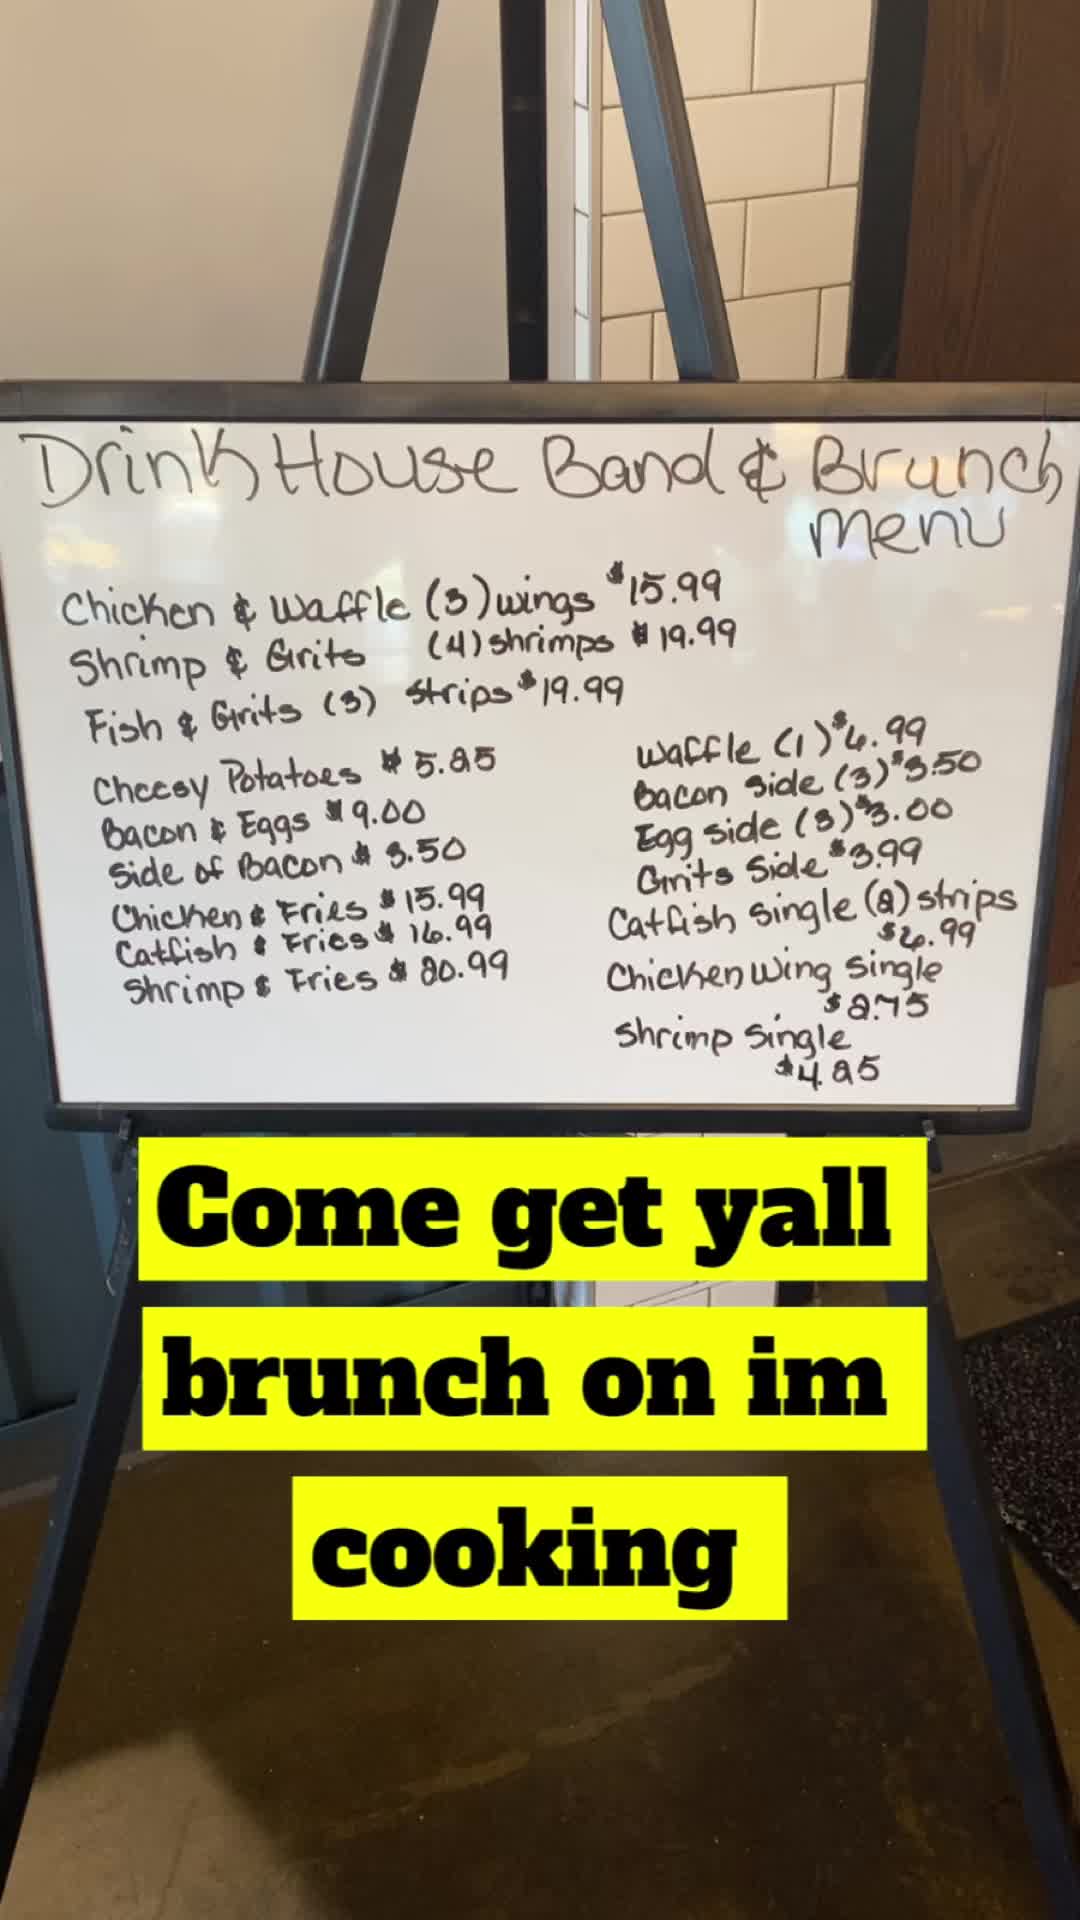 Drink House Band & Brunch
Menu
Chicken & Waffle (3) wings $15.99
Shrimp & Grits (4) shrimps $19.99
Fish & Grits (3) strips $19.99
Cheesy Potatoes $5.25
Bacon & Eggs $9.00
Side of Bacon $3.50
Chicken & Fries $15.99
Catfish & Fries $16.99
Shrimp & Fries $20.99
Waffle (1) $6.99
Bacon Side (3) $3.50
Egg side (3) $3.00
Grits Side $3.99
Catfish Single (2) strips
$6.99
Chicken Wing Single
$2.75
Shrimp Single
$4.25
Come get yall
brunch on im
cooking